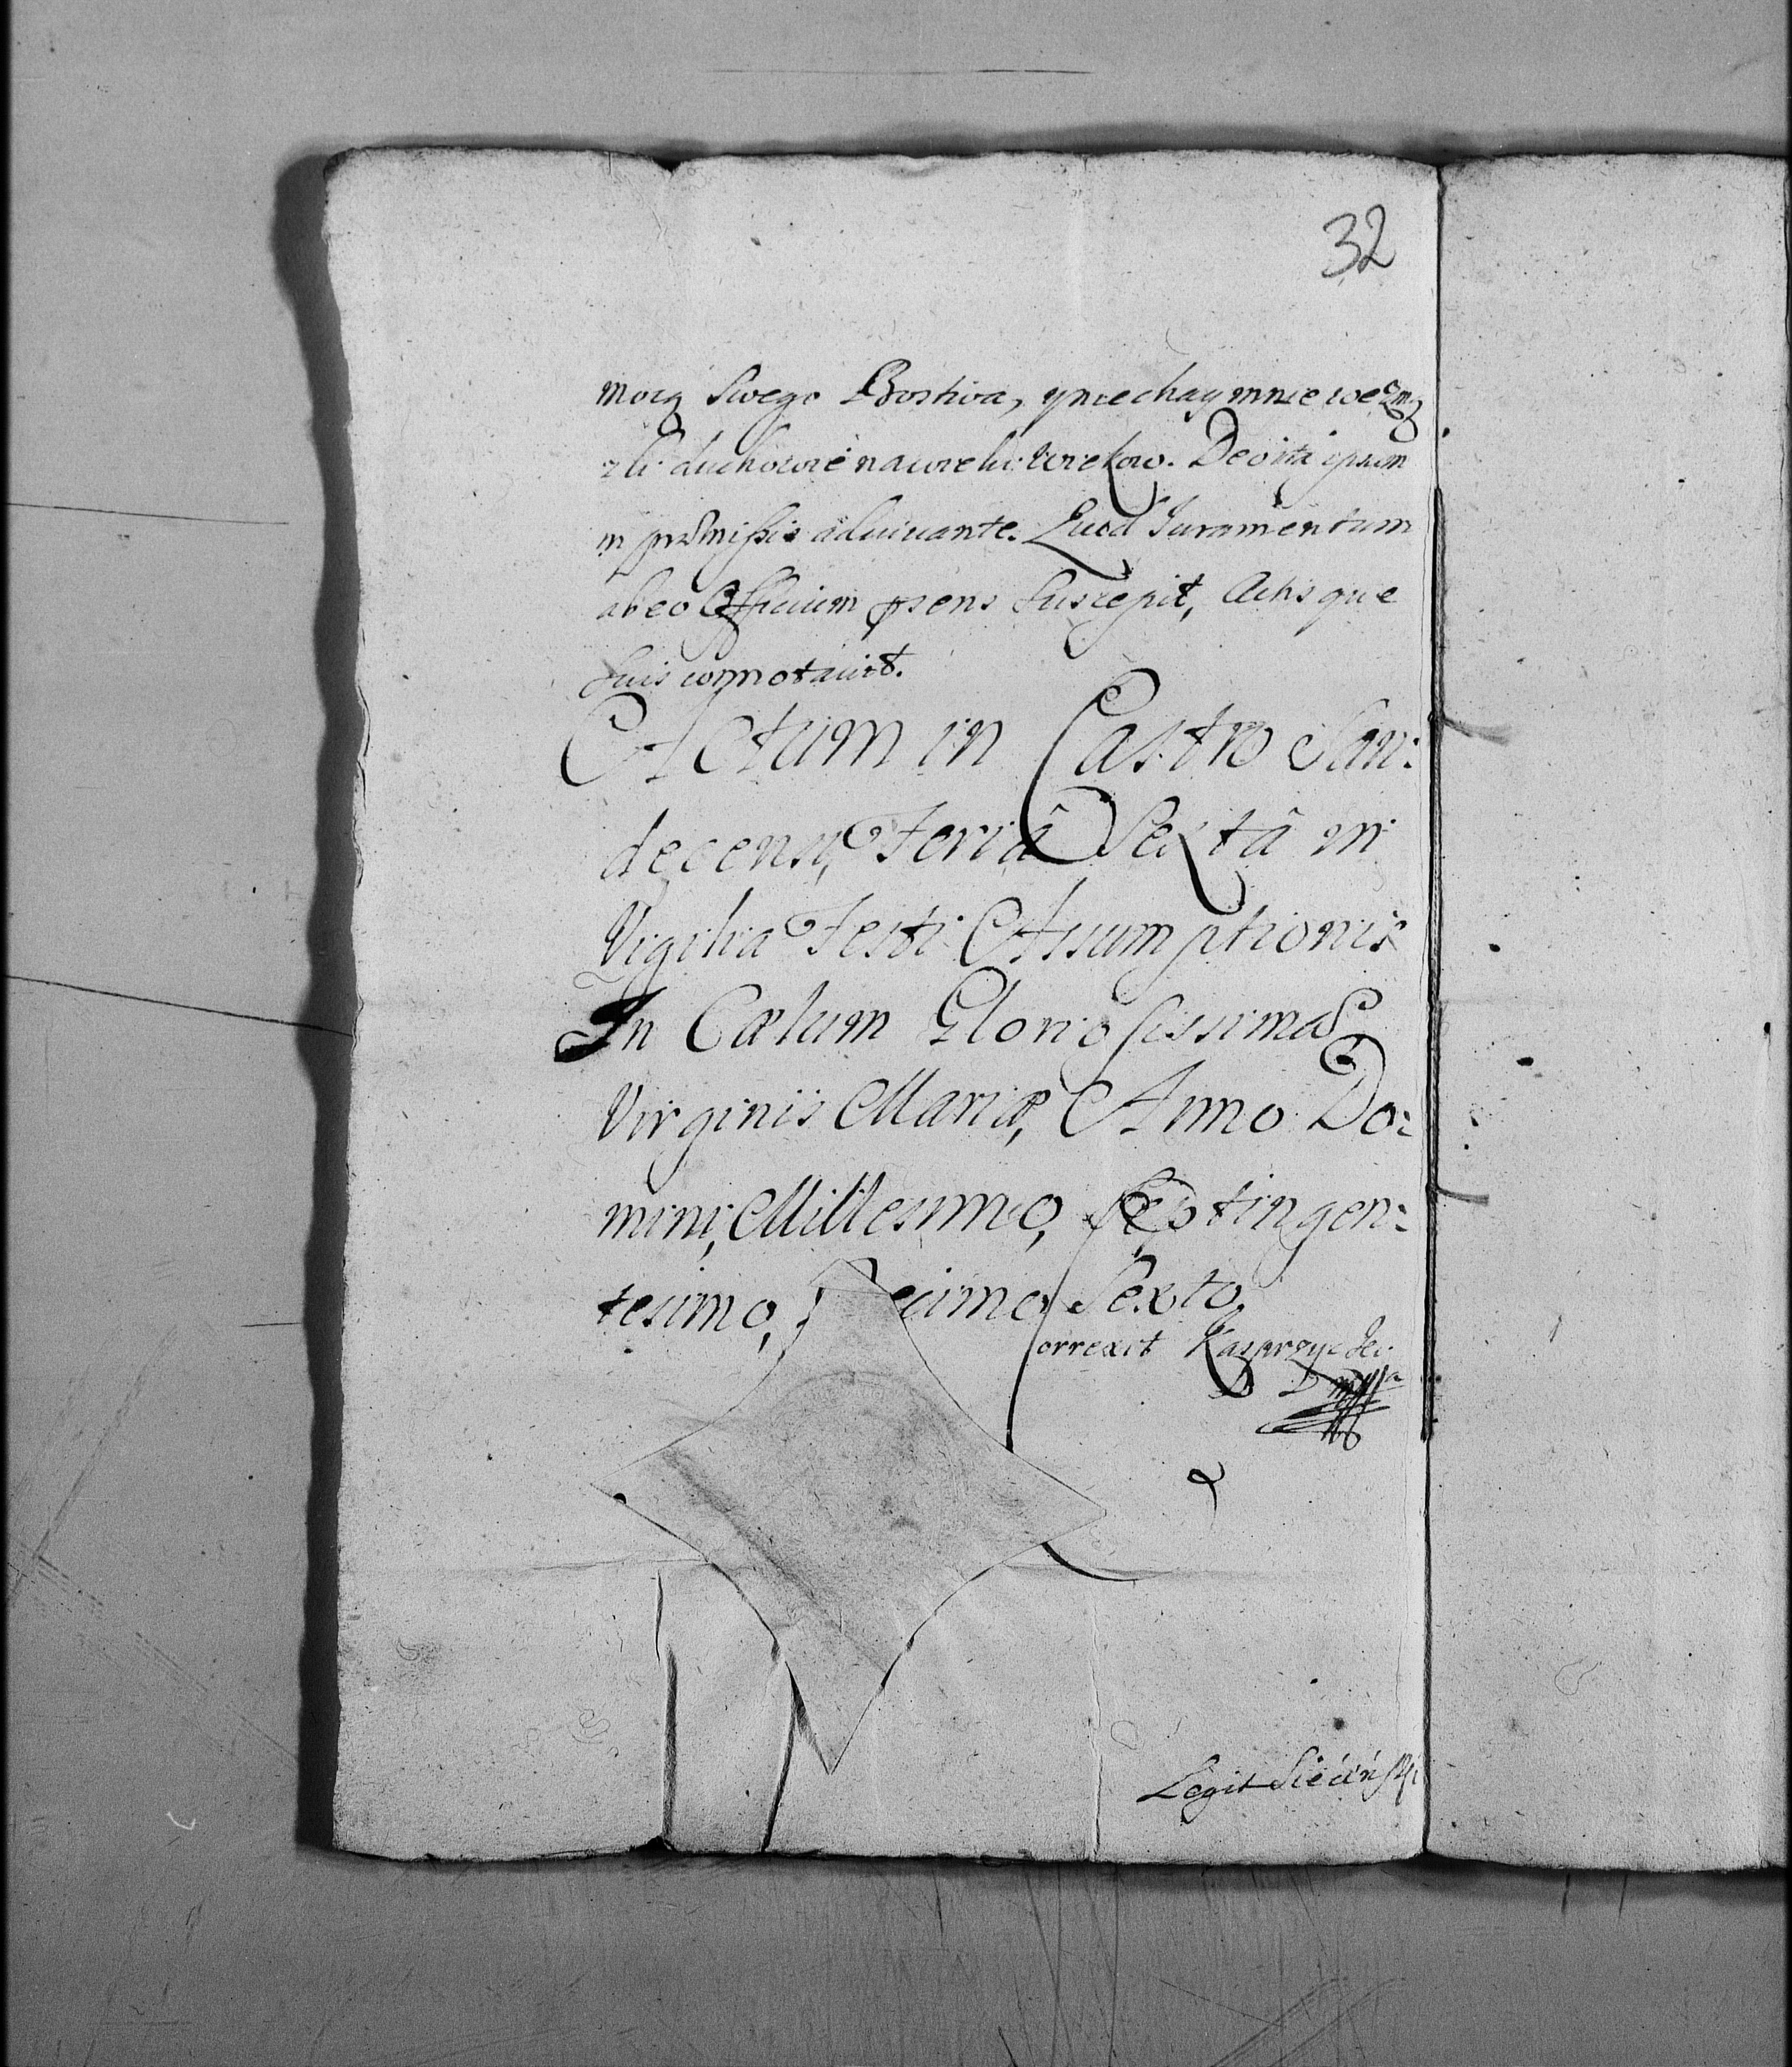 32
mocą swego Bostwa, y niechay mnie wezmą
zli duchowie na wieki wiekow. Deo ita ipsum
in præmissis adiuvante. Quod Iuramentum
ab eo Officium psens suscepit, Actisque
suis connotavit.
Actum in Castro San:
decensi, Feriâ Sextâ in
Vigilia Festi Assumptionis
In Cælum Gloriosissimæ
Virginis Mariæ, Anno Do:
mini, Millesimo, Septingen:
tesimo, Decimo Sexto.
Correxit Kasprzyc
Legit Sieciński